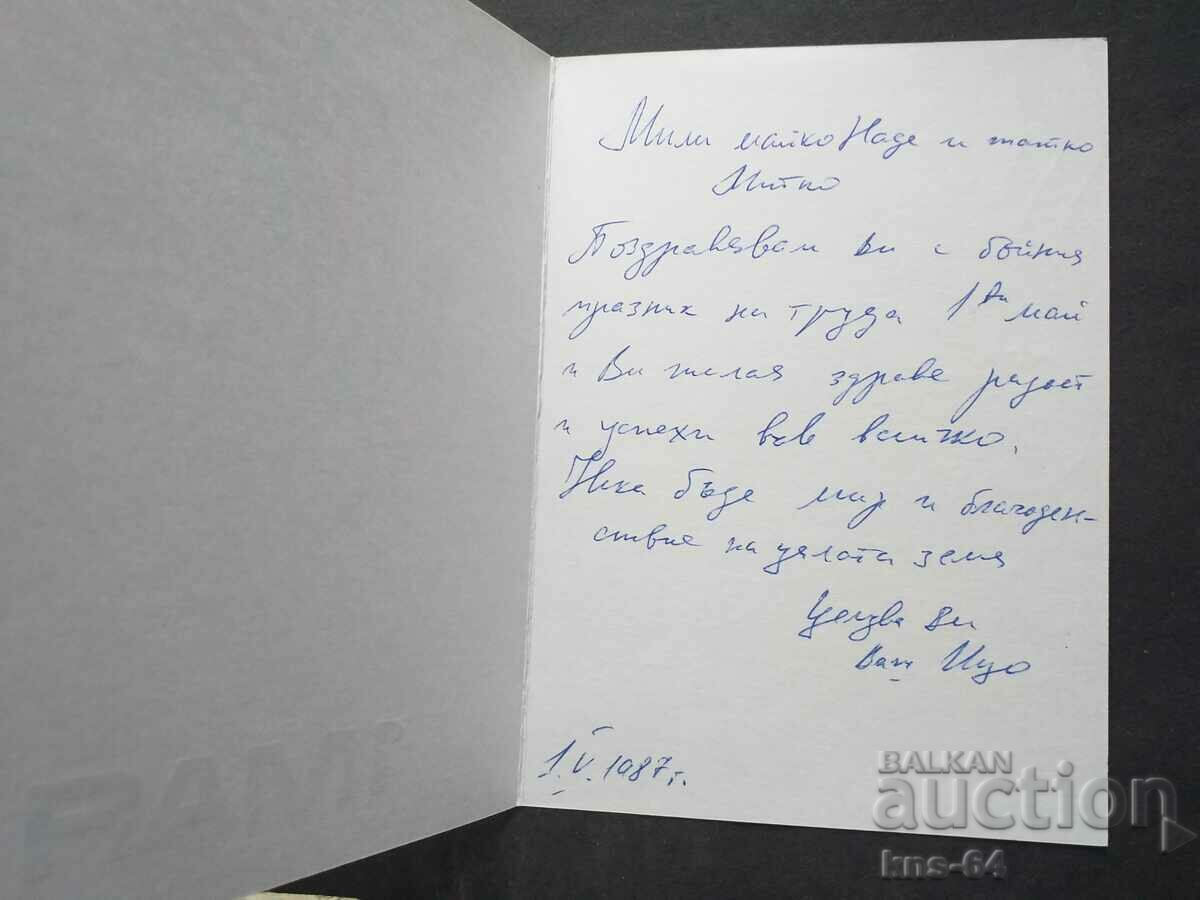 Мили майко Наде и татко
Митко
Поздравявам Ви с бойния
празник на труда 1ви май
и Ви желая здраве радост
и успехи във всичко.
Нека бъде мир и благоден-
ствие на цялата земя
Целува Ви
Ваш Ицо
1.V.1987 г.
BALKAN
auction
kns-64